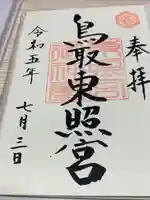 奉拝
鳥取東照宮
令和五年
七月三日